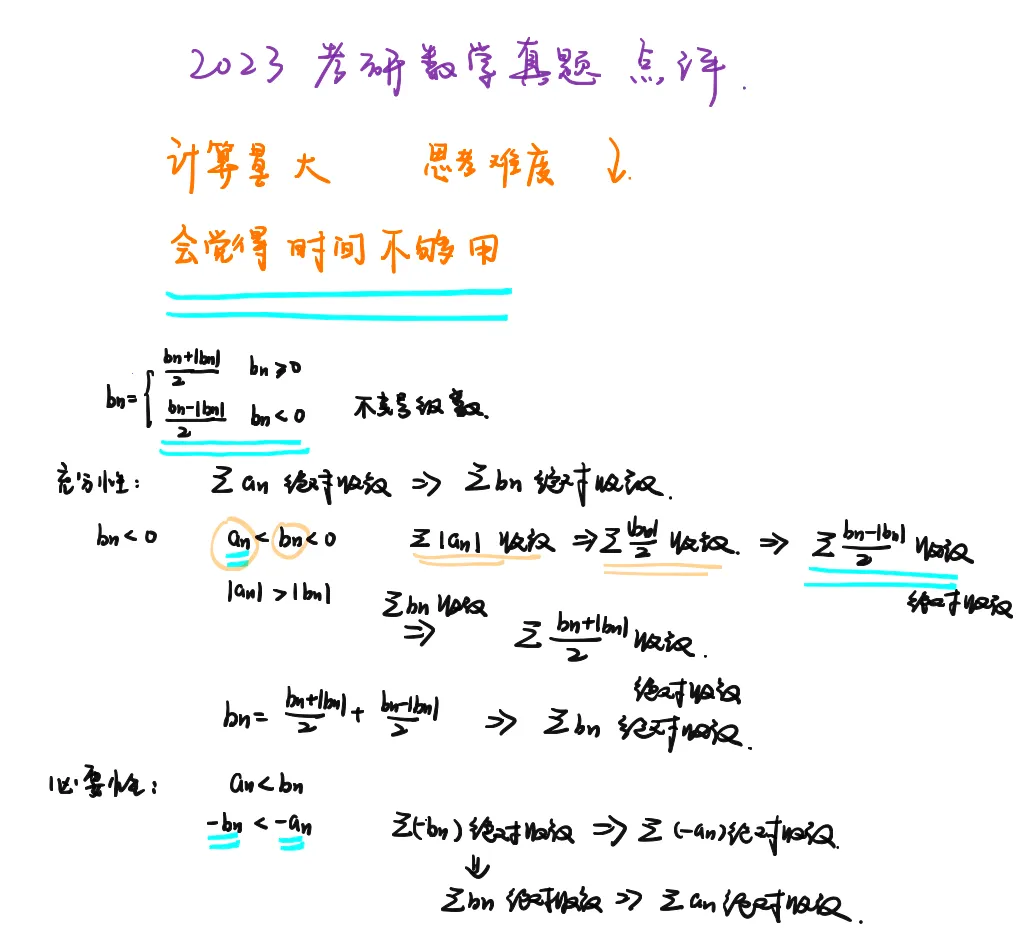 2023 考研数学真题 点评.
计算量大 思考难度 ↓.
会觉得 时间不够用
bn = { (bn+|bn|)/2 bn ≥ 0
(bn-|bn|)/2 bn < 0 不变号级数.
充分性: Σ an 绝对收敛 ⇒ Σ bn 绝对收敛.
bn < 0 an < bn < 0 Σ |an| 收敛 ⇒ Σ |bn|/2 收敛. ⇒ Σ (bn-|bn|)/2 收敛
绝对收敛
|an| > |bn| Σ bn 收敛 ⇒ Σ (bn+|bn|)/2 收敛.
绝对收敛
bn = (bn+|bn|)/2 + (bn-|bn|)/2 ⇒ Σ bn 绝对收敛.
必要性: an < bn
-bn < -an Σ(-bn) 绝对收敛 ⇒ Σ (-an) 绝对收敛.
⇓
Σ bn 绝对收敛 ⇒ Σ an 绝对收敛.